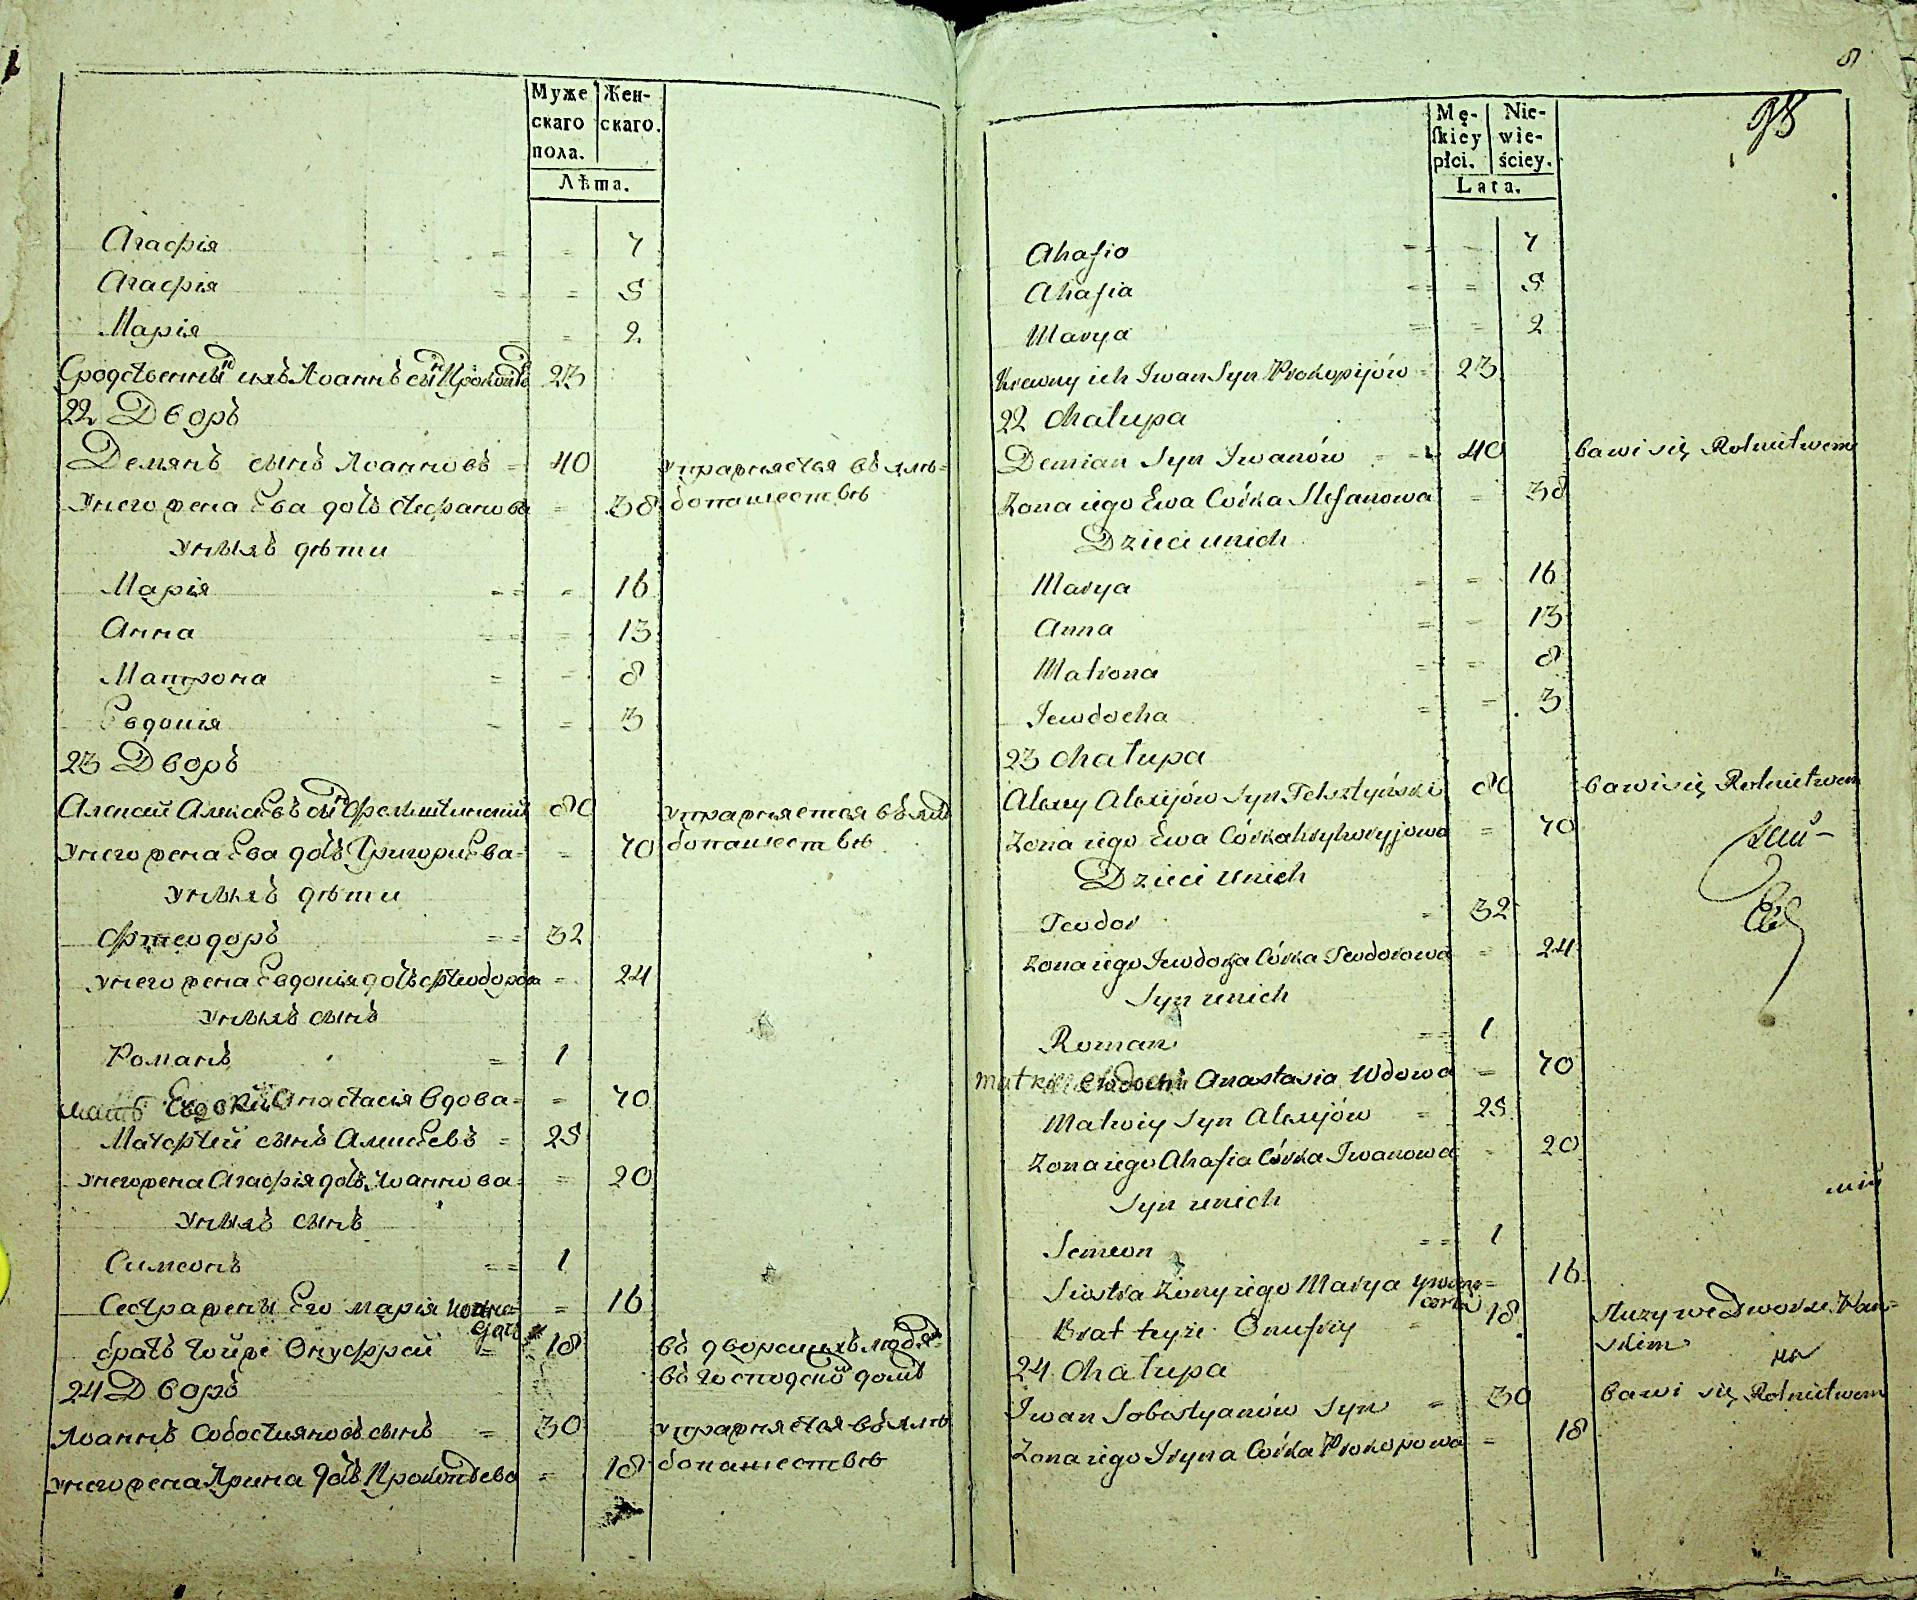 Муже Жен-
скаго скаго.
пола.
Лѣта.
Агафія = = 7
Агафія = = 5
Марія = 2
Сродственный ихъ Іоаннъ сынъ 23
22 Дворъ
Демянъ сынъ Іоанновъ = 40 упражняется въ хлѣ=
У него жена Ева дочь Стефанова = 38 бопашествѣ
У нихъ дѣти
Марія = = 16
Анна = = 13
Матрона = = 8
Евдокія = 3
23 Дворъ
Алексѣй Алексѣевъ сынъ Фельштинскій 80 упражняется въ хлѣ
У него жена Ева дочь Григоріева = = 70 бопашествѣ
У нихъ дѣти
Фтеодоръ = = 32
У него жена Евдокія дочь Фтеодорова = 24
У нихъ сынъ
Романъ = 1
мать Анастасія вдова = = 70
Матфтей сынъ Алексѣевъ = 25
У него жена Агафія дочь Іоаннова = = 20
У нихъ сынъ
Симеонъ = = 1
Сестра жены Его Марія = 16
братъ тойже Онуфрей = 18 въ дворскихъ людя=
въ господском домѣ
24 Дворъ
Іоаннъ Собостияновъ сынъ = 30 упражняется въ хлѣ
У него жена Ирина дочь Прокопьева = 18 бопашествѣ
8
98
Mę- Nie-
ſkiey wie-
płci. ściey.
Lata.
Ahafia = = 7
Ahafia = = 5
Marya = = 2
Krewny ich Iwan Syn Prokopijów = 23
22 chałupa
Demian Syn Iwanów = = 40 bawi się Rolnictwem
Zona iego Ewa Córka Stefanowa = 38
Dzieci u nich
Marya = = 16
Anna = = 13
Matrona = = 8
Iewdocha = = 3
23 chałupa
Alexy Alexijów Syn Felsztyński 80 bawi się Rolnictwem
Zona iego Ewa Córka Hryhoryjowa = 70
Dzieci u nich
Teodor = 32
Zona iego Iewdoha Córka Teodorowa = 24
Syn u nich
Roman = 1
matka Anastasia Wdowa = 70
Matwiy Syn Alexijów = 25
Zona iego Ahafia Córka Iwanowa = 20
Syn u nich
Semeon = = 1
Siostra Zony iego Marya 16
Brat teyże Onufry = 18 służy we Dworze Pań=
skim
24 chałupa
Iwan Sobestyanów Syn = 30 bawi się Rolnictwem
Zona iego Iryna Córka Prokopowa = 18